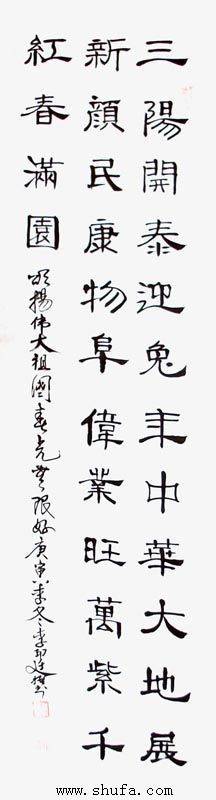 三陽開泰迎兔年中華大地展
新顏民康物阜偉業旺萬紫千
紅春滿園
揚偉大祖國春光無限好庚申年冬李
www.shufa.com